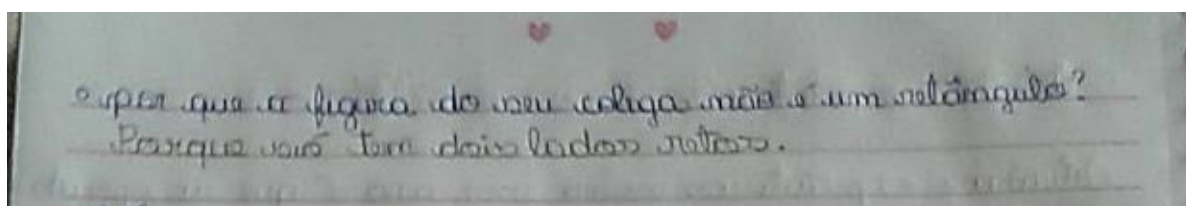 por que a figura do seu coliga não é um retângulo?
Porque só tem dois lados retos.